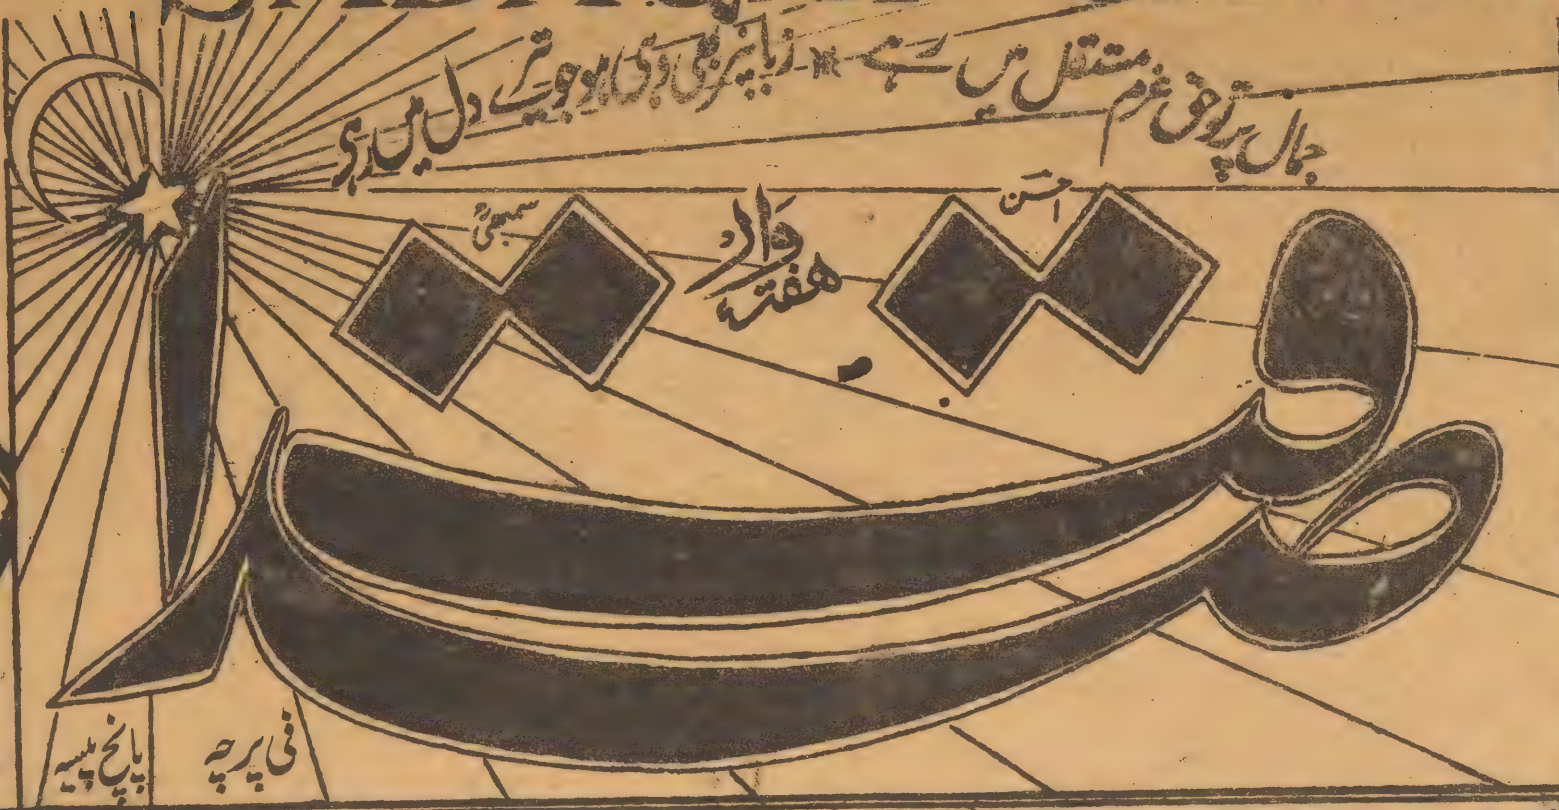 جمال پرتو حق عزم مستقل میں رہے زبانپر بھی وہی ہو جو تیرے دل میں رہے
احسن
هفتہ وار
صداقت
فی پرچہ پانچ پیسہ